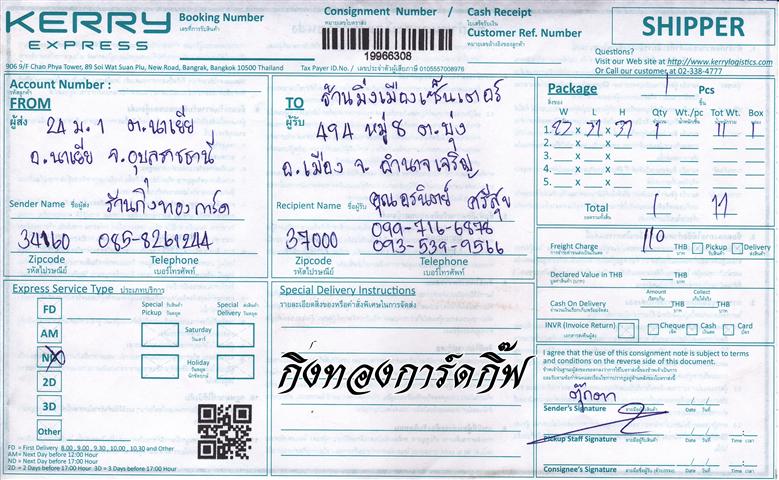 KERRY
EXPRESS
Booking Number
เลขที่การรับสินค้า
Consignment Number / Cash Receipt
หมายเลขใบตราส่ง
ใบเสร็จรับเงิน
19966308
Customer Ref. Number
หมายเลขอ้างอิงของลูกค้า
SHIPPER
Questions?
Visit our Web site at http://www.kerrylogistics.com
Or Call our customer at 02-338-4777
906 9/F Chao Phya Tower, 89 Soi Wat Suan Plu, New Road, Bangrak, Bangkok 10500 Thailand
Tax Payer ID.No./ เลขประจำตัวผู้เสียภาษี 0105557008976
Account Number :
รหัสลูกค้า
FROM
ผู้ส่ง
24 ม.1 ต.นาเยีย
อ.นาเยีย จ.อุบลราชธานี
Sender Name ชื่อผู้ส่ง ร้านกิ่งทองการ์ด
34160 085-8261244
Zipcode Telephone
รหัสไปรษณีย์ เบอร์โทรศัพท์
TO
ผู้รับ
ร้านมิ่งเมืองเซ็นเตอร์
494 หมู่ 8 ต.บุ่ง
อ.เมือง จ.อำนาจเจริญ
Recipient Name ชื่อผู้รับ
ศรีสุข
37000 099-716-6878
093-539-9566
Zipcode Telephone
รหัสไปรษณีย์ เบอร์โทรศัพท์
Package 1 Pcs
สิ่งของ ชิ้น
W L H Qty Wt./pc Tot Wt. Box
1. x x 1 11 1
2. x x
3. x x
4. x x
5. x x
Total 1 11
ยอดรวมทั้งสิ้น
Freight Charge 110 THB Pickup Delivery
บาท รับสินค้า ส่งสินค้า
Declared Value in THB THB
บาท
Amount Collect
Cash On Delivery THB
บาท
INVR (Invoice Return) Cheque Cash Card
เช็ค เงินสด บัตร
Express Service Type ประเภทบริการ
FD
AM
ND
2D
3D
Other
Special Pickup
รับสินค้า
วันหยุด
Special Delivery
ส่งสินค้า
วันหยุด
Saturday
วันเสาร์
Holiday
วันหยุด
นักขัตฤกษ์
FD = First Delivery 8.00 , 9.00 , 9.30 , 10.00 , 10.30 and Other
AM = Next Day before 12:00 Hour
ND = Next Day before 17:00 Hour
2D = 2 Days before 17:00 Hour 3D = 3 Days before 17:00 Hour
Special Delivery Instructions
รายละเอียดสิ่งของหรือคำสั่งพิเศษในการจัดส่ง
กิ่งทองการ์ดกิ๊ฟ
I agree that the use of this consignment note is subject to terms
and conditions on the reverse side of this document.
ตุ๊กตา
Sender's Signature ลายมือผู้ส่งสินค้า Date วันที่
Pickup Staff Signature Date วันที่ Time เวลา
Consignee's Signature Date วันที่ Time เวลา